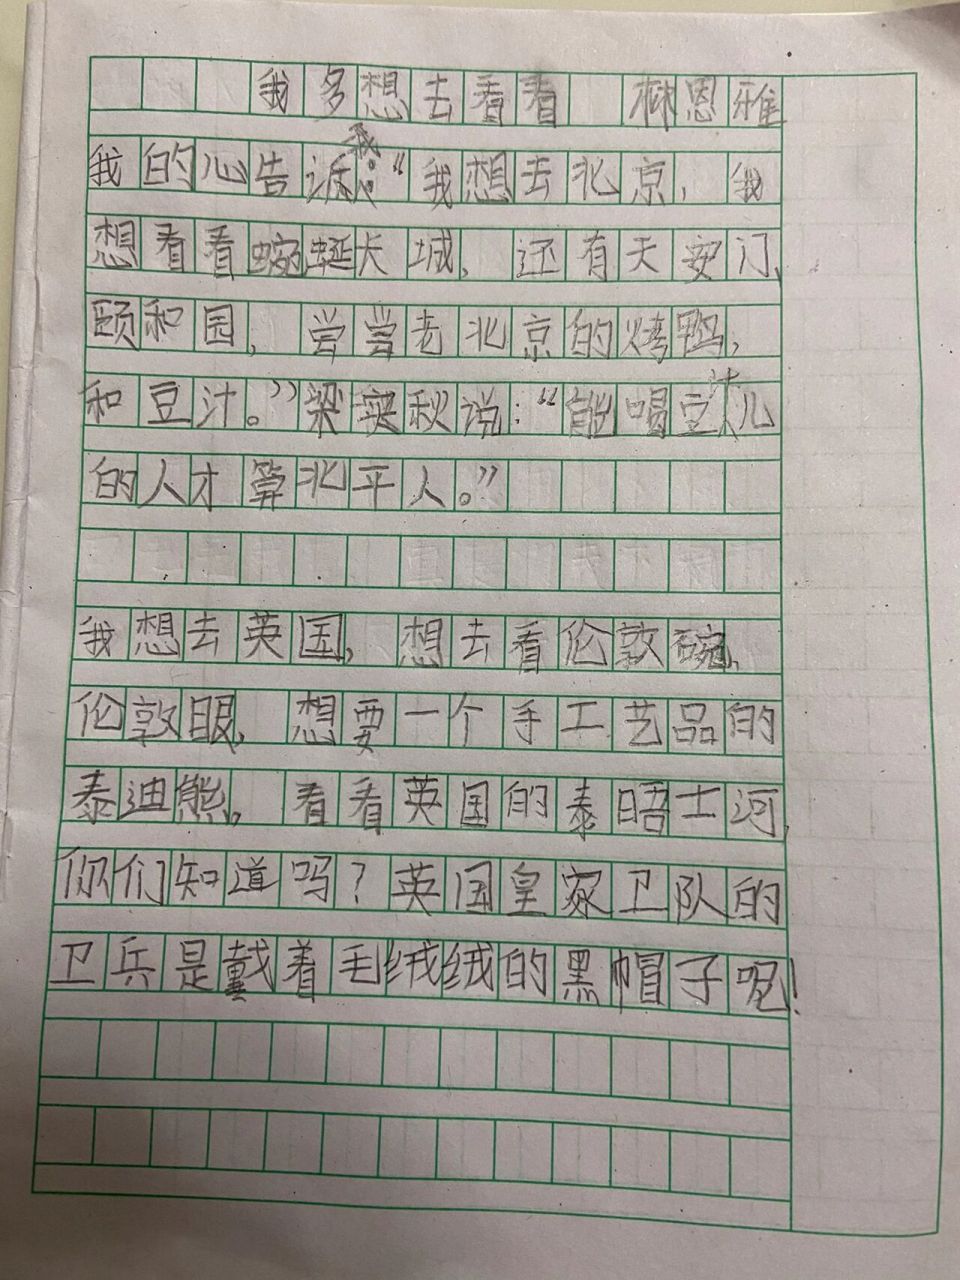 我多想去看看 林恩雅
我的心告诉我：“我想去北京，我
想看看蜿蜒长城，还有天安门、
颐和园，尝尝老北京的烤鸭，
和豆汁。”梁实秋说：“能喝豆汁儿
的人才算北平人。”
我想去英国，想去看伦敦碗、
伦敦眼，想要一个手工艺品的
泰迪熊，看看英国的泰晤士河，
你们知道吗？英国皇家卫队的
卫兵是戴着毛绒绒的黑帽子呢！